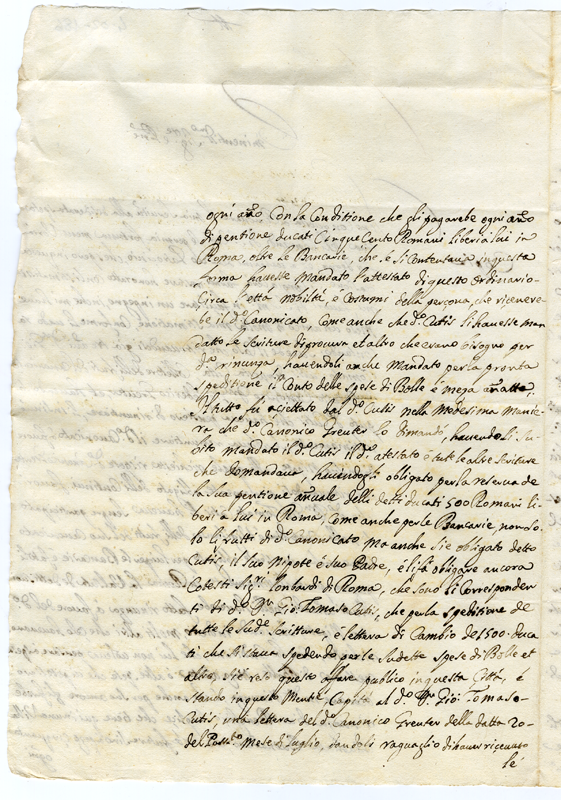 ogni año, Con la Conditione che gli pagarebe ogni año
di pentione ducati Cinque Cento Romani liberi à lui in
Roma, oltre le Bancarie, che è si Contentaua in questa
forma hauesse Mandato l'attestato di questo Ordinario
Circa l'ettà nobiltà, è Costumi della persona, che riceuere
be il d.º Canonicato, Come anche che d.º Cutis li hauesse man
dato le scriture di procura et altro che erano bisogno per
d.ª rinunza, hauendoli anche Mandato per la pronta
speditione il Conto delle spese di Bolle è meza añatta,
Il tutto fù acettato dal d.º Cutis nella Medesima Manie
ra che d.º Canonico Greuter lo dimandò, hauendoli Su
bito mandato il d.º Cutis il d.º atestato è tutte le altre scriture
che domandaua, hauendogli obligato per la reserua de
la sua pentione añuale delli detti ducati 500 Romani li
beri à lui in Roma, Come anche per le Bancarie non so
lo li frutti di d.º Canonicato ma anche si è obligato detto
Cutis, il suo Nipote è suo Padre, è li fà obligare ancora
Cotesti Sig.ri lombardi di Roma, che sono li Corresponden
ti di d.º Gio: Tomaso Cutis, che per la speditione de
tutte le Sud.e Scritture, è lettera di Cambio de 1500 duca
ti che si staua spedendo per le sudette spese di Bolle et
altro, si è reso questo affare publico in questa Città, è
stando in questo Mentre, Capitò al d.º Gio: Tomaso
Cutis, una lettera del d.º Canonico Greuter della datta 20
del Pass.to Mese di luglio, dandoli raguaglio di hauer riceuuto
le